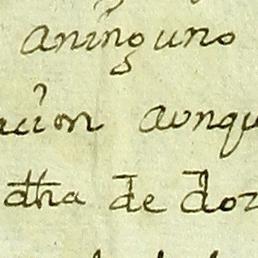 aninguno
acion aunqu
dha de doz